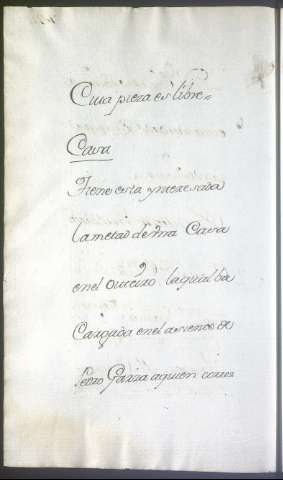 Cuia pieza es libre=
Casa
Tiene esta ynteresada
la metad de Vna Casa
en el outeiro la qual ba
Cargada en el asiento de
Pedro Garza a quien corres